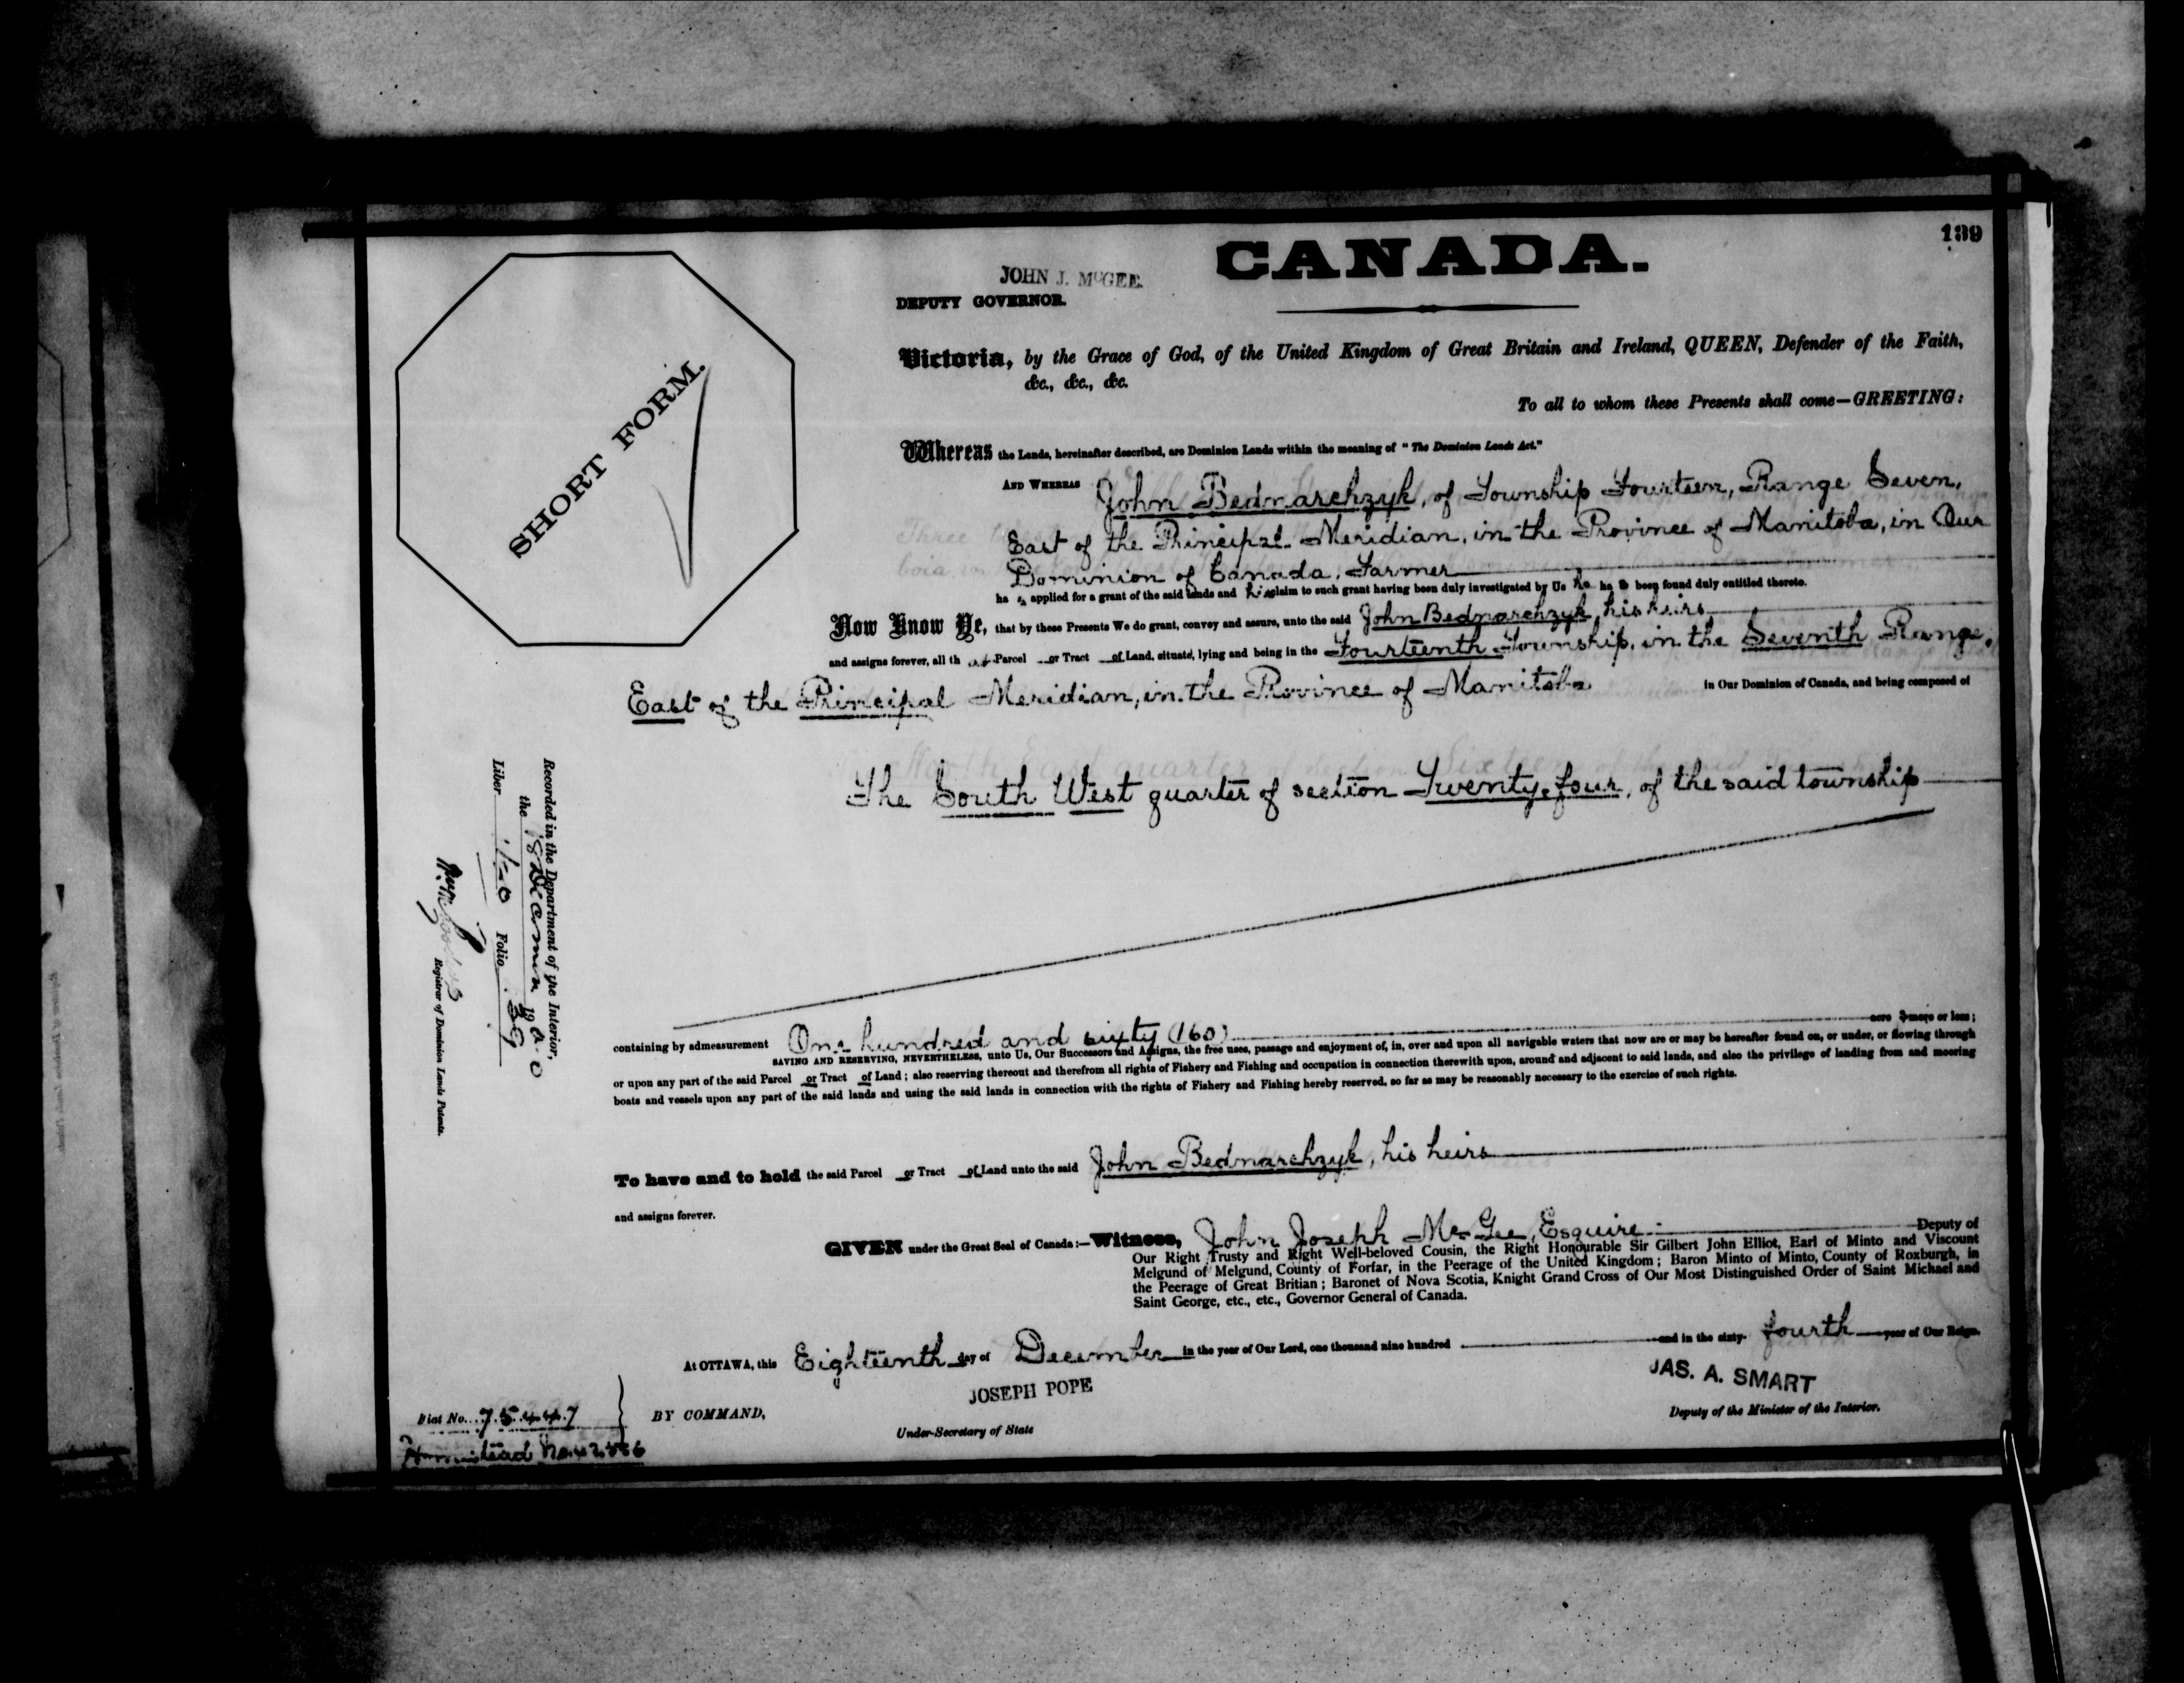 139
CANADA.
JOHN J. McGEE.
DEPUTY GOVERNOR.
SHORT FORM.
Victoria, by the Grace of God, of the United Kingdom of Great Britain and Ireland, QUEEN, Defender of the Faith,
&c., &c., &c.
To all to whom these Presents shall come—GREETING:
Whereas the Lands, hereinafter described, are Dominion Lands within the meaning of "The Dominion Lands Act."
AND WHEREAS John Bednarchzyk, of Township Fourteen, Range Seven,
East of the Principal Meridian, in the Province of Manitoba, in Our
Dominion of Canada, Farmer
ha s applied for a grant of the said lands and his claim to such grant having been duly investigated by Us he ha s been found duly entitled thereto.
Now Know Ye, that by these Presents We do grant, convey and assure, unto the said John Bednarchzyk, his heirs
and assigns forever, all th at Parcel or Tract of Land, situate, lying and being in the Fourteenth Township, in the Seventh Range,
East of the Principal Meridian, in the Province of Manitoba in Our Dominion of Canada, and being composed of
The South West quarter of section Twenty-four, of the said township
containing by admeasurement One hundred and sixty (160) acre s more or less;
SAVING AND RESERVING, NEVERTHELESS, unto Us, Our Successors and Assigns, the free uses, passage and enjoyment of, in, over and upon all navigable waters that now are or may be hereafter found on, or under, or flowing through
or upon any part of the said Parcel or Tract of Land; also reserving thereout and therefrom all rights of Fishery and Fishing and occupation in connection therewith upon, around and adjacent to said lands, and also the privilege of landing from and mooring
boats and vessels upon any part of the said lands and using the said lands in connection with the rights of Fishery and Fishing hereby reserved, so far as may be reasonably necessary to the exercise of such rights.
To have and to hold the said Parcel or Tract of Land unto the said John Bednarchzyk, his heirs
and assigns forever.
GIVEN under the Great Seal of Canada:—Witness, John Joseph McGee, Esquire Deputy of
Our Right Trusty and Right Well-beloved Cousin, the Right Honourable Sir Gilbert John Elliot, Earl of Minto and Viscount
Melgund of Melgund, County of Forfar, in the Peerage of the United Kingdom; Baron Minto of Minto, County of Roxburgh, in
the Peerage of Great Britian; Baronet of Nova Scotia, Knight Grand Cross of Our Most Distinguished Order of Saint Michael and
Saint George, etc., etc., Governor General of Canada.
At OTTAWA, this Eighteenth day of December in the year of Our Lord, one thousand nine hundred and in the sixty- fourth year of Our Reign.
JOSEPH POPE
JAS. A. SMART
BY COMMAND,
Under-Secretary of State
Deputy of the Minister of the Interior.
Fiat No. 75447
Homestead No.
Recorded in the Department of the Interior,
the 18 December 1900
Liber 120 Folio 39
Registrar of Dominion Lands Patents.